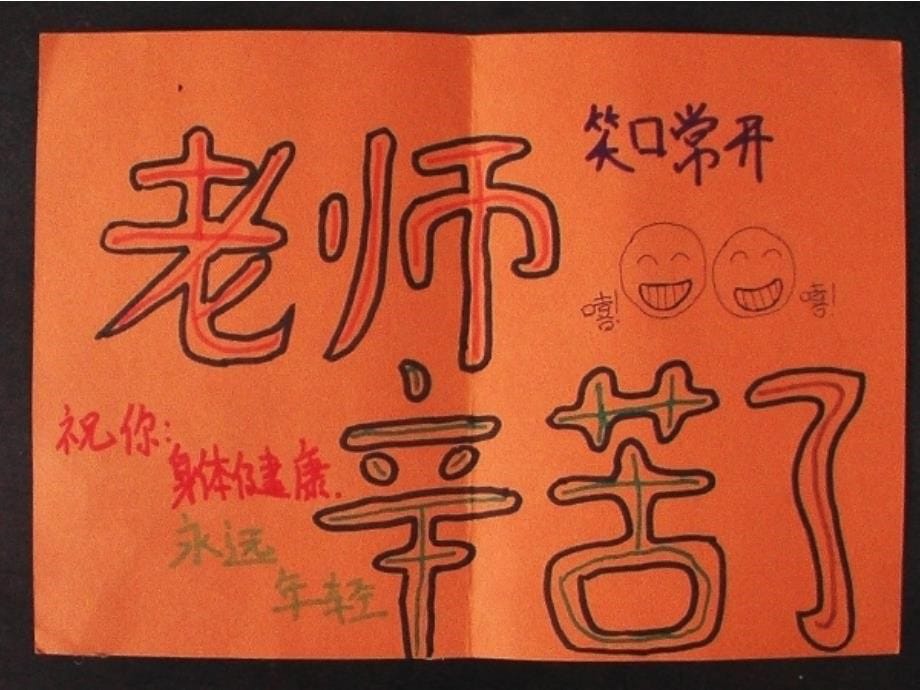 笑口常开
老师
嘻!
嘻!
辛苦了
祝你:
身体健康.
永远
年轻